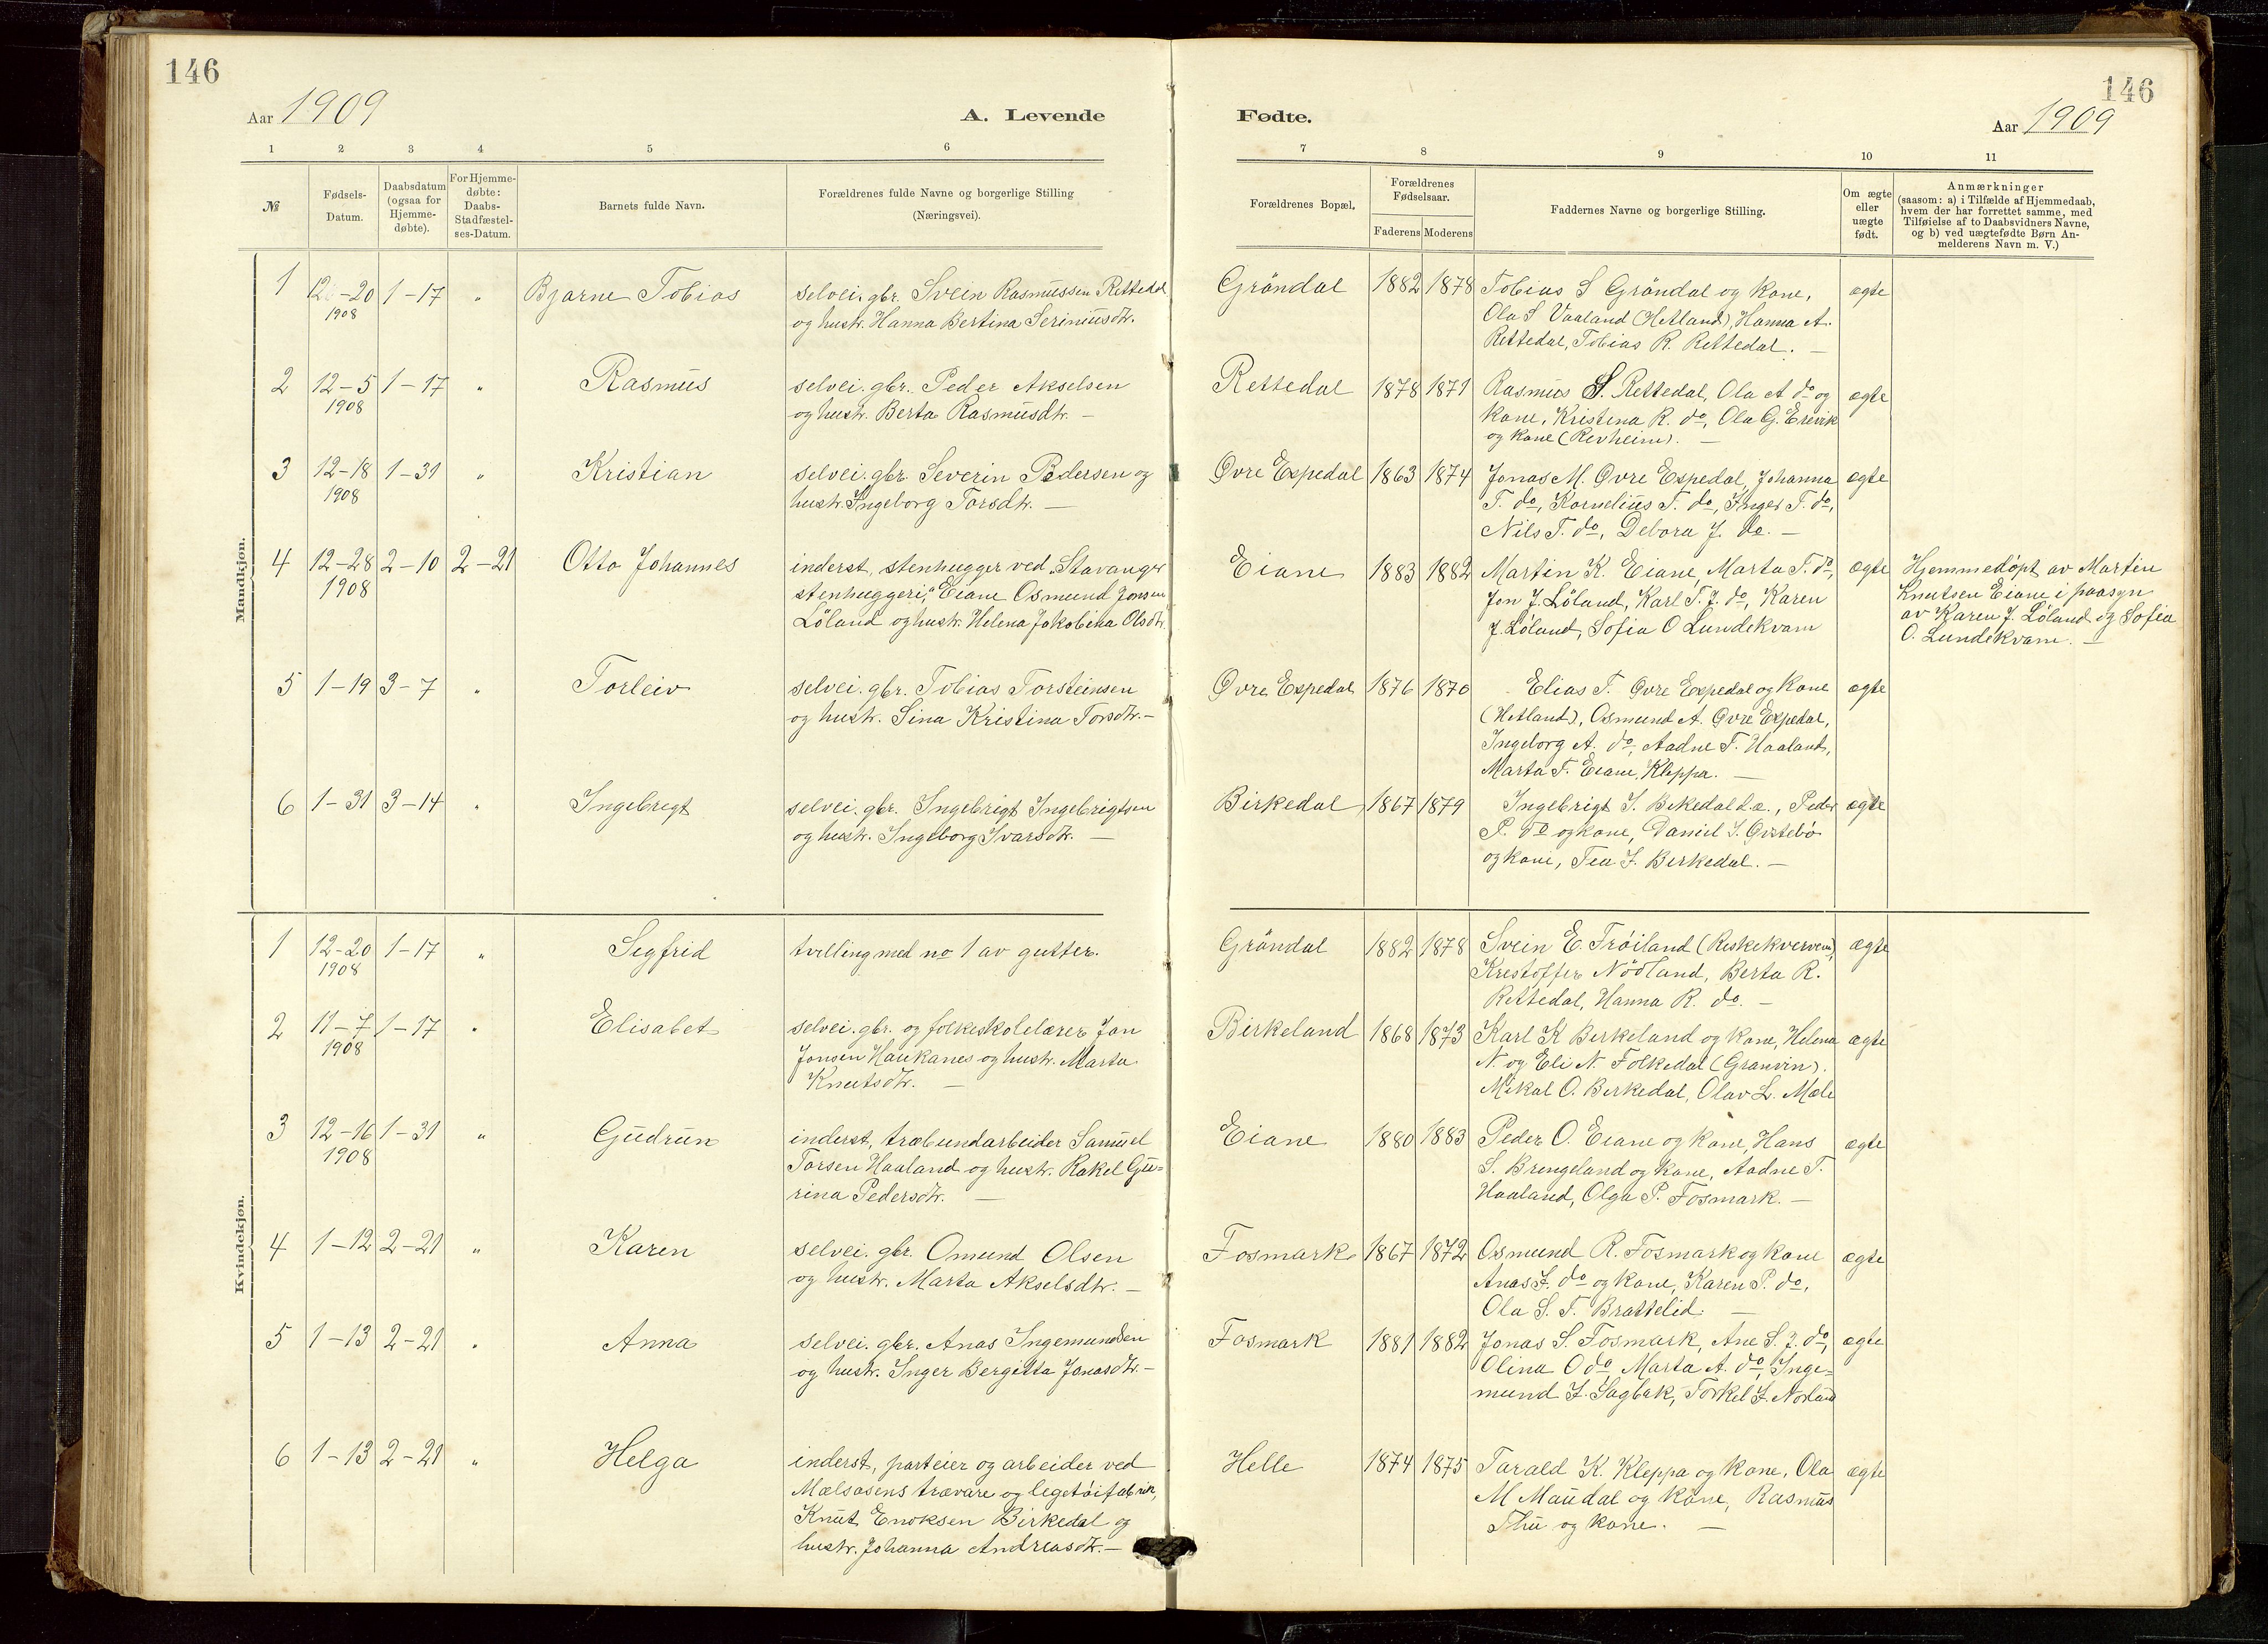 146
146
Aar 1909
A. Levende
Fødte.
Aar 1909
1 2 3 4 5 6
7 8 9 10 11
№
Fødsels-
Datum.
Daabsdatum
(ogsaa for
Hjemme-
døbte).
For Hjemme-
døbte:
Daabs-
Stadfæstel-
ses-Datum.
Barnets fulde Navn.
Forældrenes fulde Navne og borgerlige Stilling
(Næringsvei).
Forældrenes Bopæl.
Forældrenes
Fødselsaar.
Faderens Moderens
Faddernes Navne og borgerlige Stilling.
Om ægte
eller
uægte
født.
Anmærkninger
(saasom: a) i Tilfælde af Hjemmedaab,
hvem der har forrettet samme, med
Tilføielse af to Daabsvidners Navne,
og b) ved uægtefødte Børn An-
melderens Navn m. V.)
Mandkjøn.
1 12-20 1-17 " Bjarne Tobias
1908
selvei. gbr. Svein Rasmussen Rettedal
og hustr. Hanna Bertina Seriniusdtr.
Gröndal 1882 1878
Tobias S Gröndal og kone,
Ola S Vaaland (Hetland), Hanna A.
Rettedal, Tobias R. Rettedal. —
ægte
2 12-5 1-17 " Rasmus
1908
selvei. gbr. Peder Akselsen
og hustr. Berta Rasmusdtr. —
Rettedal 1878 1871
Rasmus S. Rettedal, Ola A do og
kone, Kristina R. do, Ola G. Erevik
og kone (Revheim). —
ægte
3 12-18 1-31 " Kristian
1908
selvei. gbr. Severin Pedersen og
hustr. Ingeborg Torsdtr. —
Øvre Espedal 1863 1874
Jonas M. Øvre Espedal, Johanna
T. do, Kornelius T. do, Inger T. do,
Nils T. do, Debora J. do. —
ægte
4 12-28 2-10 2-21 Otto Johannes
1908
inderst, stenhugger ved "Stavanger
stenhuggeri," Eiane Osmund Jonsen
Löland og hustr. Helena Jakobina Olsdtr.
Eiane 1883 1882
Martin K. Eiane, Marta T. do,
Jon J. Löland, Karl T. J. do, Karen
J. Löland, Sofia O Lundekvam
ægte
Hjemmedöpt av Martin
Knutsen Eiane i paasyn
av Karen J. Löland og Sofia
O. Lundekvam. —
5 1-19 3-7 " Torleiv
selvei. gbr. Tobias Torsteinsen
og hustr. Sina Kristina Torsdtr. —
Øvre Espedal 1876 1870
Elias T. Øvre Espedal og kone
(Hetland), Osmund A. Øvre Espedal,
Ingeborg A. do, Aadne T. Haaland,
Marta T. Eiane, Kleppa. —
ægte
6 1-31 3-14 " Ingebrigt
selvei. gbr. Ingebrigt Ingebrigtsen
og hustr. Ingeborg Ivarsdtr. —
Birkedal 1867 1879
Ingebrigt I. Bekedal d.æ., Peder
P. do og kone, Daniel I. Øvstebö
og kone, Tea I. Berkedal. —
ægte
Kvindekjøn.
1 12-20 1-17 " Segfrid
1908
tvilling med no 1 av gutter.
Gröndal 1882 1878
Svein E. Tröiland (Reskekverven),
Krestoffer Nödland, Berta R.
Rettedal, Hanna R. do. —
ægte
2 11-7 1-17 " Elisabet
1908
selvei. gbr. og folkeskolelærer Jon
Jonsen Haukanes og hustr. Marta
Knutsdtr. —
Birkeland 1868 1873
Karl K Berkeland og kone, Helena
N. og Eli N. Folkedal (Granvin).
Mikal O. Berkedal, Olav L. Mæle
ægte
3 12-16 1-31 " Gudrun
1908
inderst, træbundarbeider Samuel
Torsen Haaland og hustr. Rakel Gu=
rina Pedersdtr. —
Eiane 1880 1883
Peder O. Eiane og kone, Hans
S. Brengeland og kone, Aadne T.
Haaland, Olga P. Fosmark. —
ægte
4 1-12 2-21 " Karen
selvei. gbr. Omund Olsen
og hustr. Marta Akselsdtr. —
Fosmark 1867 1872
Osmund R. Fosmark og kone
Anas I. do og kone, Karen P. do,
Ola S. T. Brattelid. —
ægte
5 1-13 2-21 " Anna
selvei. gbr. Anas Ingemundsen
og hustr. Inger Bergitta Jonasdtr. —
Fosmark 1881 1882
Jonas S. Fosmark, Ane S. J. do,
Olina O do, Marta A. do, Inge=
mund I. Sagbak, Torkel I. Norland
ægte
6 1-13 2-21 " Helga
inderst, parteier og arbeider ved
Mælsosens trævare og legetöifabrik,
Knut Enoksen Birkedal og
hustr. Johanna Andreasdtr. —
Helle 1874 1875
Tarald K. Kleppa og kone, Ola
M Maudal og kone, Rasmus
Thu og kone. —
ægte